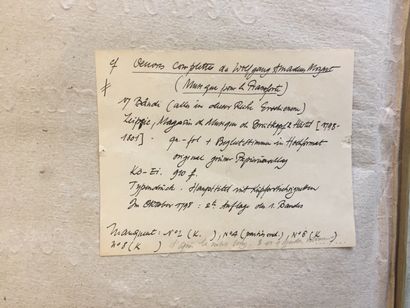 cf Oeuvres complettes de Wolfgang Amadeus Mozart
(Musique pour le Pianoforte)
#
17 Bände (alles in dieser Reihe Erschienene)
Leipzig, Magasin de Musique de Breitkopf & Härtel [1798-
1801] - qu-fol + Begleitstimmen in Hochformat
original grüner Papierumschlag
Kö-Ei. 910 f.
Typendruck. Haupttitel mit Kupferstichvignetten
Im Oktober 1798 : 2te Auflage des 1. Bandes
Manquent : N°2 (K. ), N°4 (parties nd.), N°6 (K
N°8 (K )